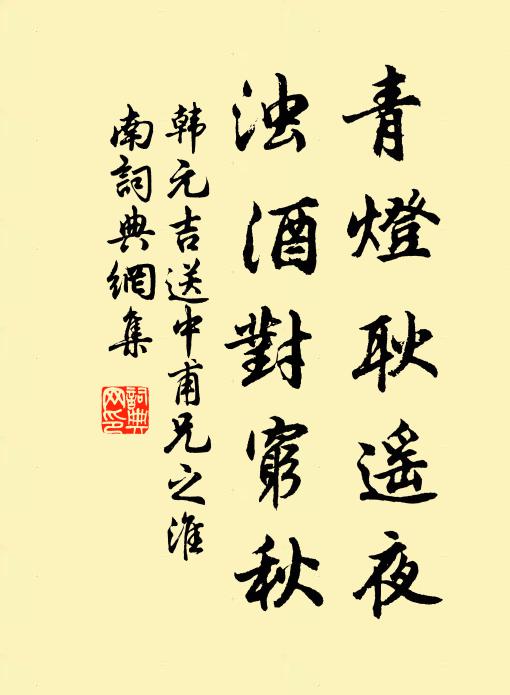 青燈耿遥夜
浊酒對窮秋
韩元吉送中甫兄之淮
南詞典網集
詞典
网印